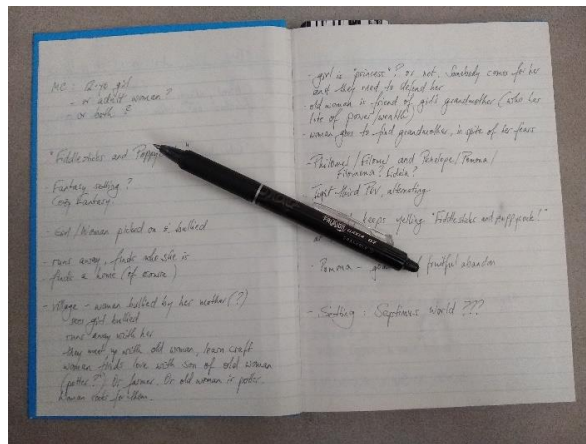 MC: 12-yo girl
- or adult woman?
- or both?
"Fiddlesticks and Poppy
- Fantasy setting?
Cozy Fantasy!
Girl/Woman picked on & bullied
- runs away, finds who she is
finds a home (of course)
- village - woman bullied by her mother (?)
sees girl bullied
runs away with her
they meet up with old woman, learn craft
woman finds love with son of old woman
(potter?) Or farmer. Or old woman is potter.
woman cooks for them.
- girl is "princess"? or not. Somebody comes for her
and they need to defend her
old woman is friend of girl's grandmother (who has
life of power/wealth)
- woman goes to find grandmother, in spite of her fears
- Philomel/Filomel and Penelope/Pomona/
Filomena?
tight-third POV, alternating
keeps yelling "Fiddlesticks and poppycock!"
at
Pomona - fruitful abandon
- Setting: Septimus World ???